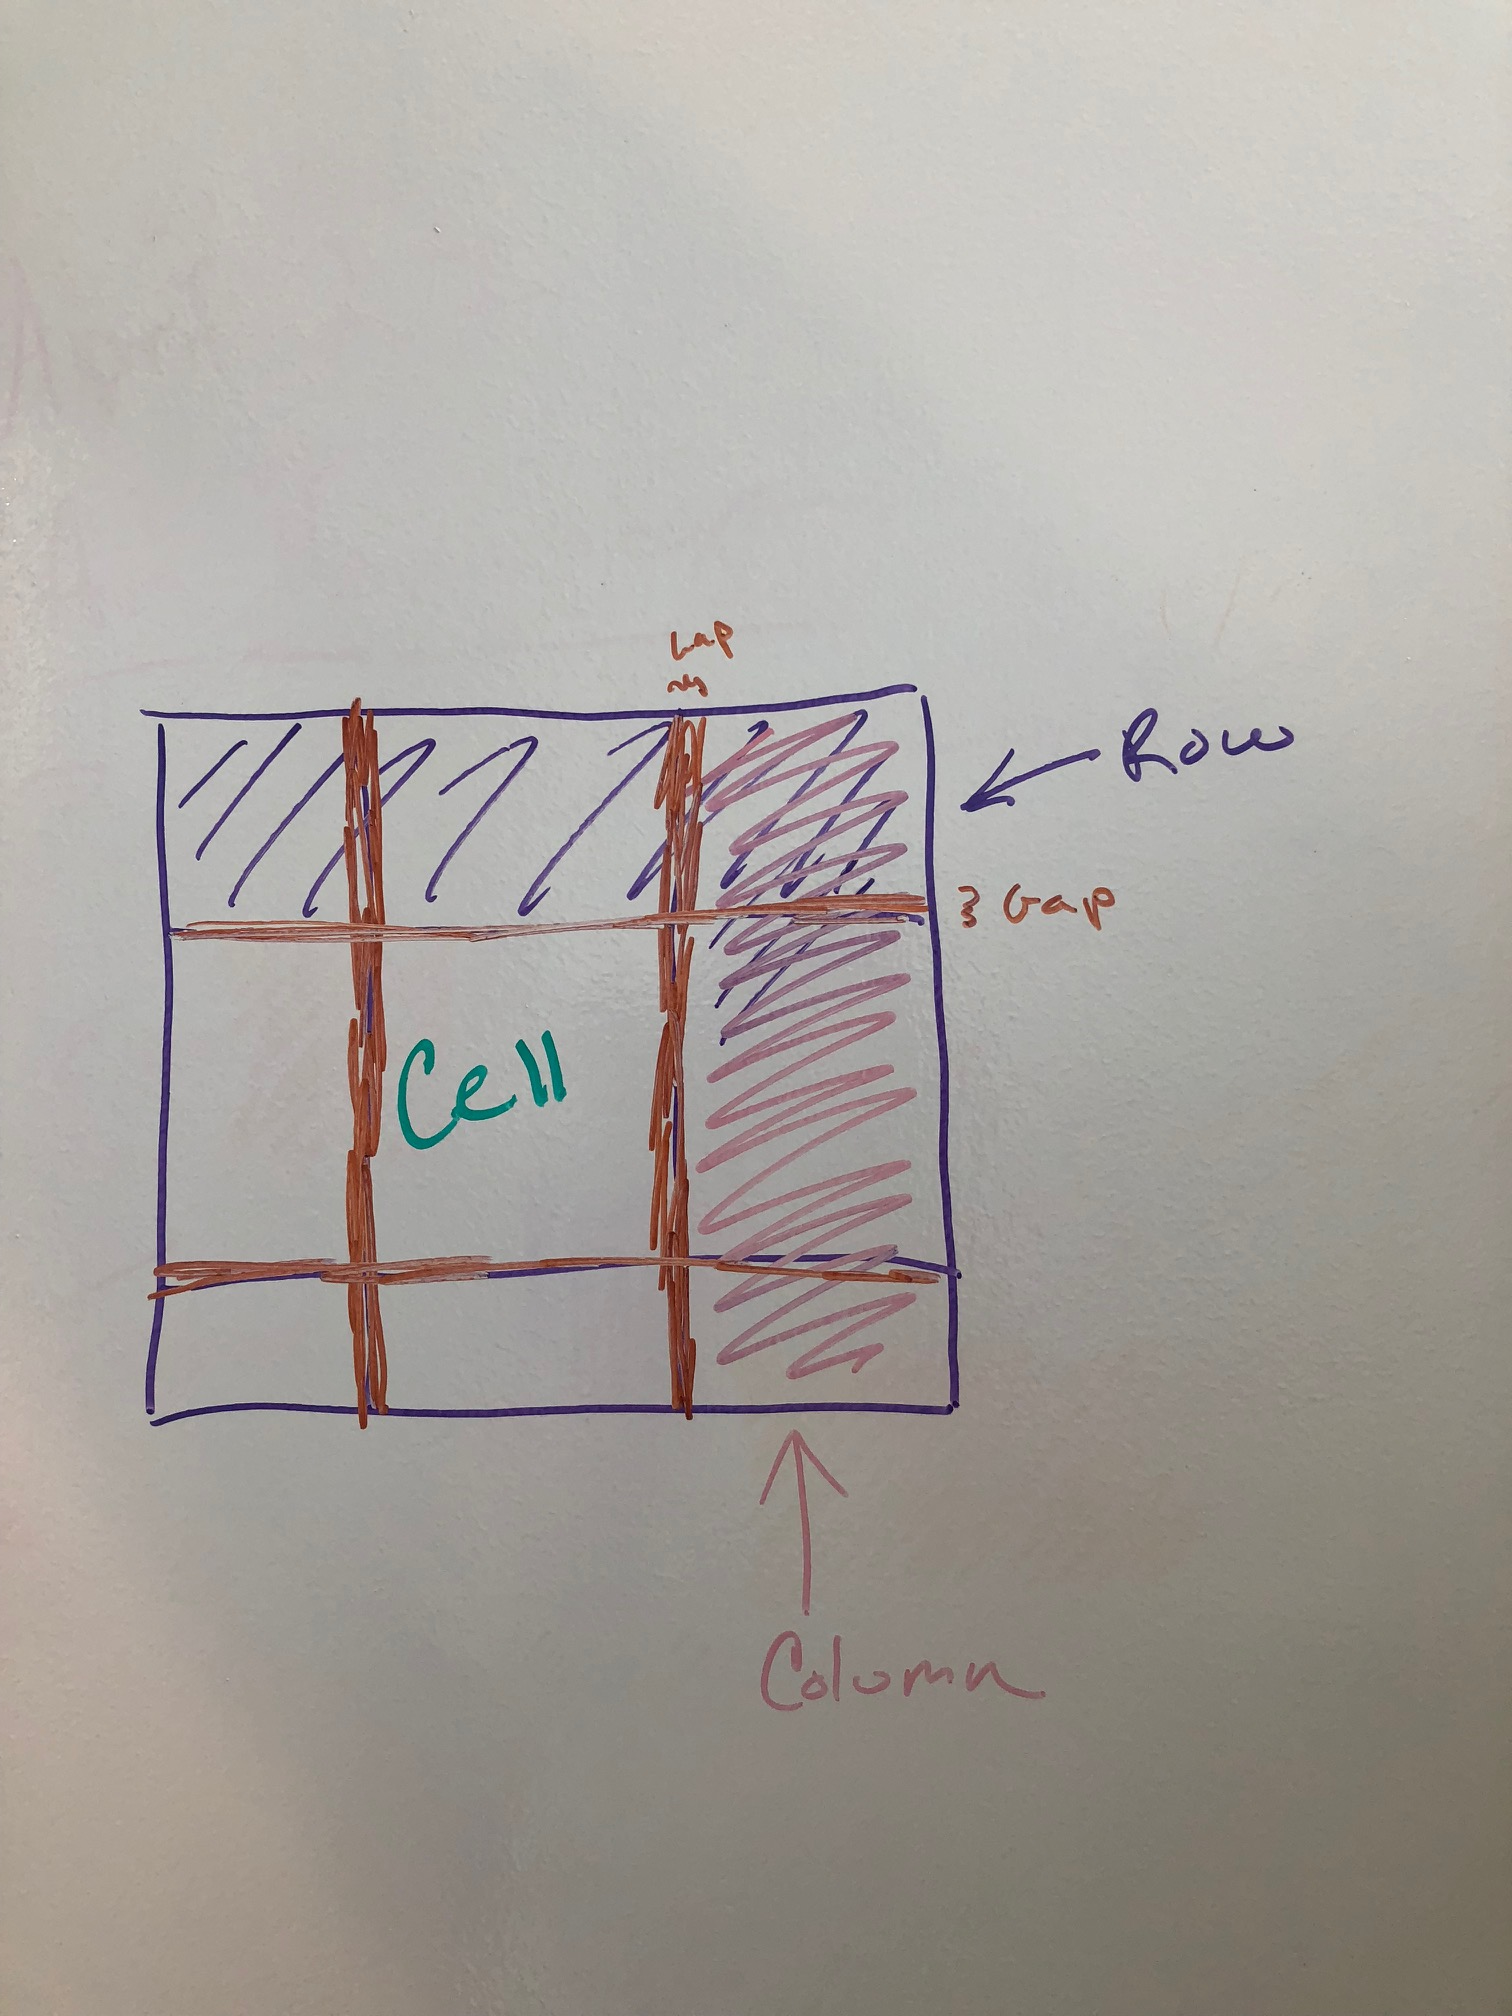 Gap
Row
Gap
Cell
Column